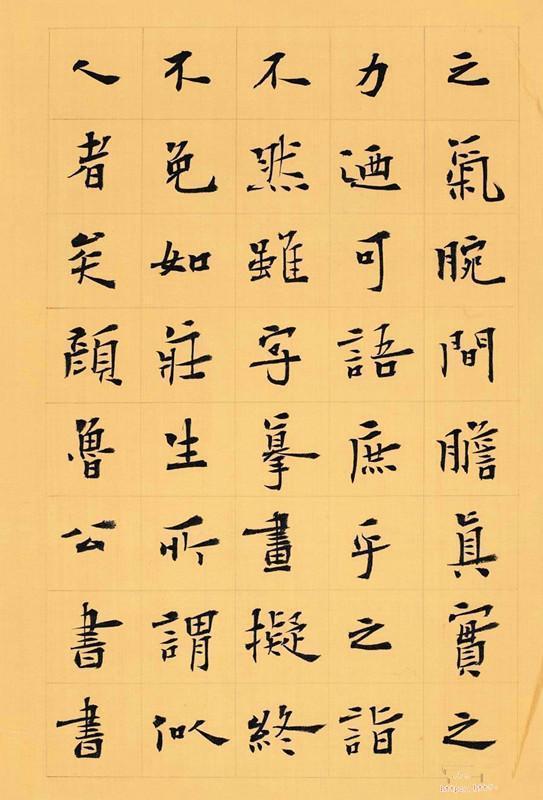 之氣腕間膽眞實之
力迺可語庶乎之詣
不然雖字摹畫擬終
不免如莊生所謂似
人者矣顏魯公書書